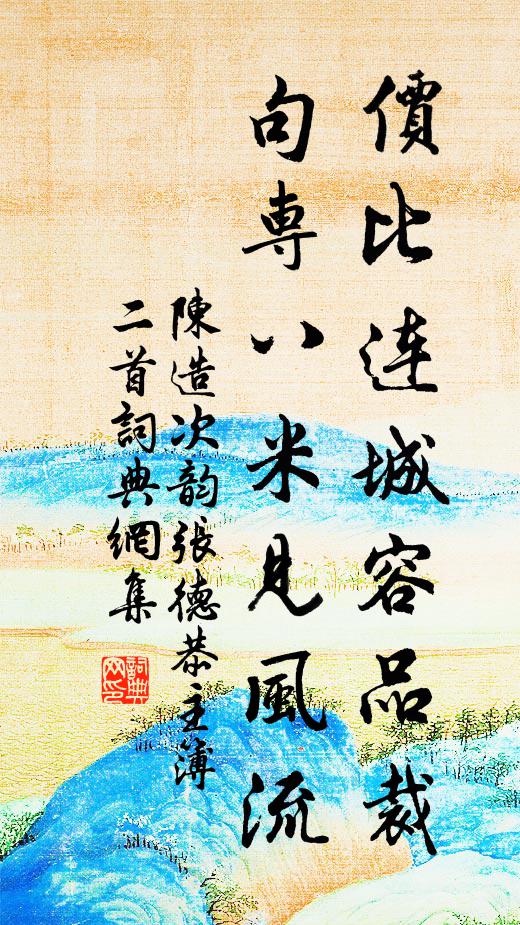 價比連城容品裁
句専八米見風流
陳造次韵張德恭主簿
二首詞典網集
詞典
网印